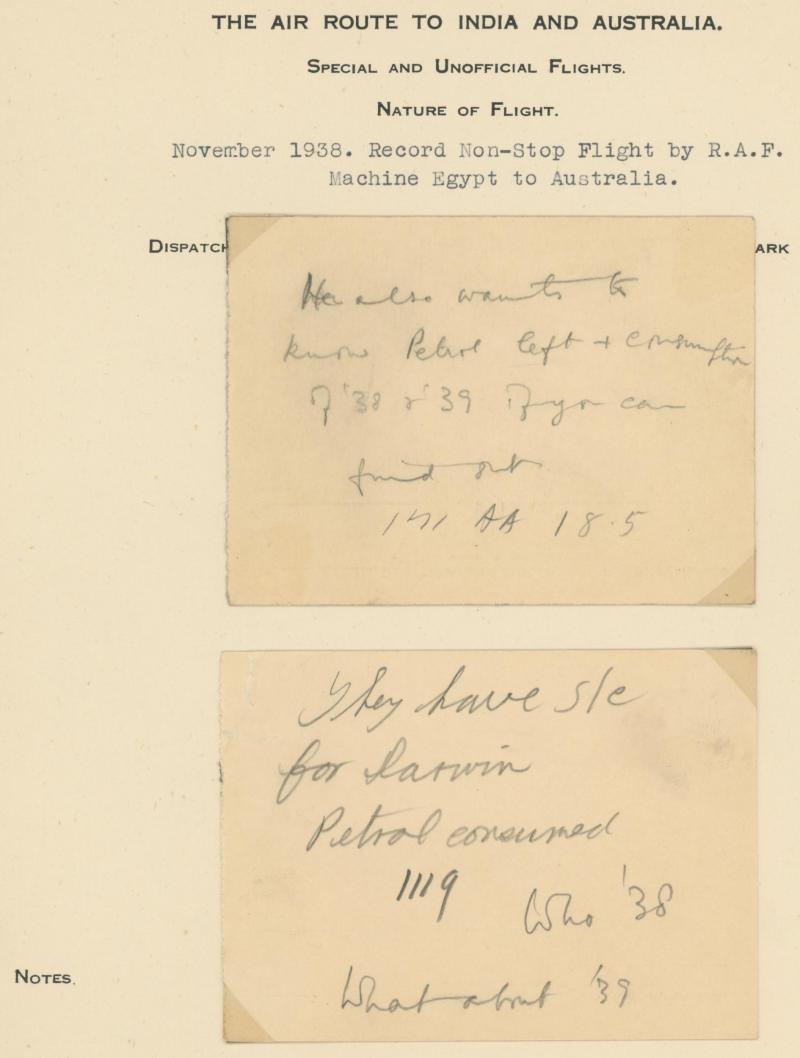 THE AIR ROUTE TO INDIA AND AUSTRALIA.
SPECIAL AND UNOFFICIAL FLIGHTS.
NATURE OF FLIGHT.
November 1938. Record Non-Stop Flight by R.A.F.
Machine Egypt to Australia.
DISPATCH ARK
He also wants to
know Petrol left + consumption
of '38 & '39 If you can
find out
AA 18.5
They have s/c
for Darwin
Petrol consumed
1119
Who '38
What about '39
NOTES.